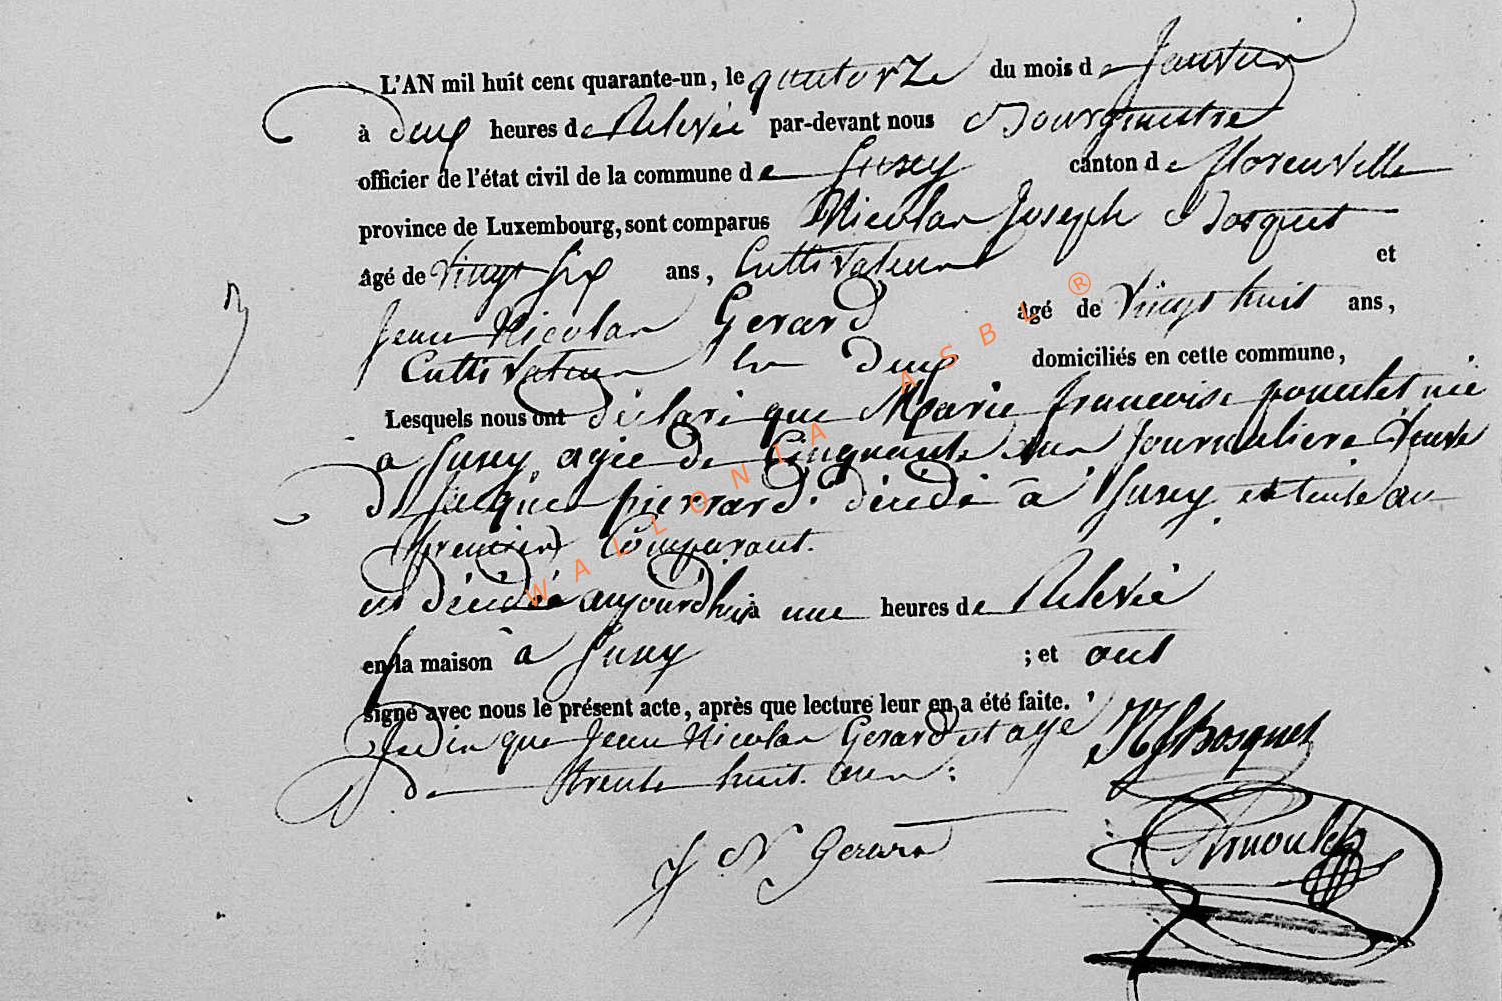 L'AN mil huit cent quarante-un, le quatorze du mois de Janvier
à deux heures de Relevée par-devant nous Bourgmestre
officier de l'état civil de la commune de Suxy canton de florenville
province de Luxembourg, sont comparus Nicolas Joseph Bosquet
âgé de vingt six ans, Cultivateur et
Jean Nicolas Gerard âgé de vingt huit ans,
Cultivateur les deux domiciliés en cette commune,
Lesquels nous ont déclaré que Marie francoise née
a Suxy agée de Cinquante ans Journaliere Veuve
de Jacque pierrard décédé à Suxy et tente au
premier Comparant.
est décédée aujourd'hui à une heures de Relevée
en la maison à Suxy ; et ont
signé avec nous le présent acte, après que lecture leur en a été faite.
Jedis que Jean Nicolas Gerard est agé
de trente huit ans
NJ Bosquet
J N Gerard
Arnould
WALLONIA ASBL ®